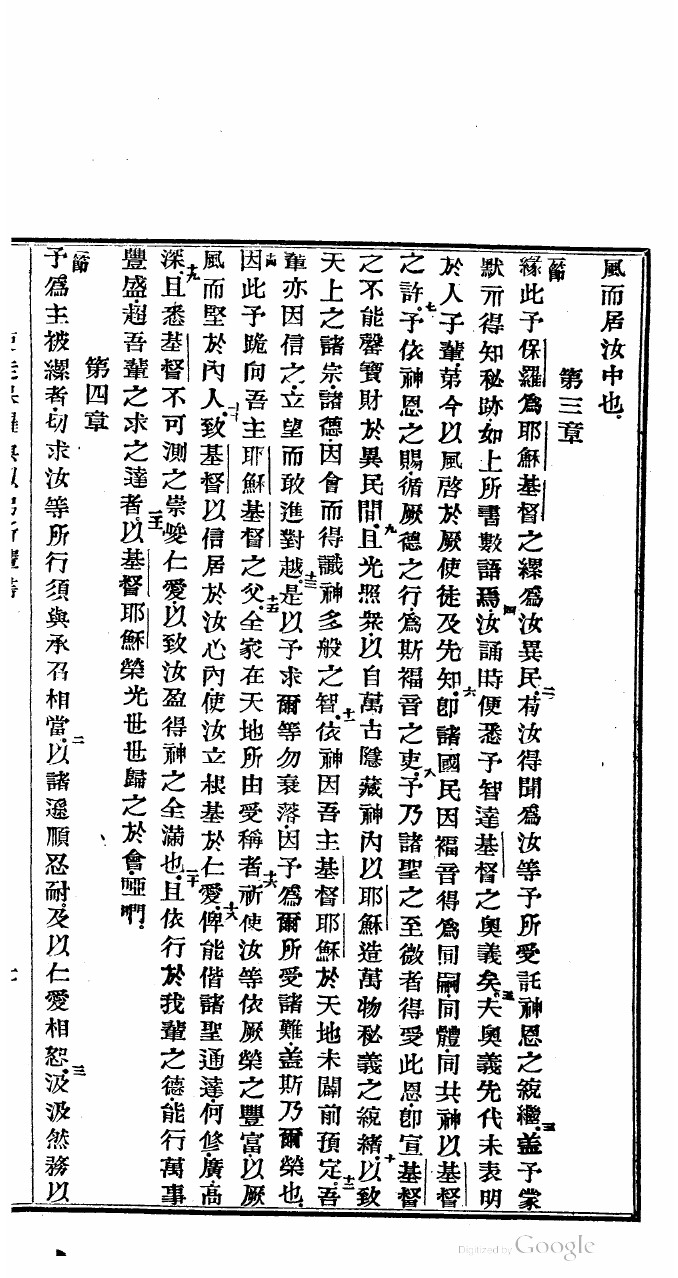 風而居汝中也
第三章
一節 緣此予保羅爲耶穌基督之縲爲汝異民二苟汝得聞爲汝等予所受託神恩之統繼三蓋予蒙
默示得知秘跡如上所書數語焉四汝誦時便悉予智達基督之奧義矣五夫奧義先代未表明
於人子輩第今以風啓於厥使徒及先知六卽諸國民因福音得爲同嗣同體同共神以基督
之許七予依神恩之賜循厥德之行爲斯福音之吏八予乃諸聖之至微者得受此恩卽宣基督
之不能罄寶財於異民間九且光照衆以自萬古隱藏神內以耶穌造萬物秘義之統緒十以致
天上之諸宗諸德因會而得識神多般之智十一依神因吾主基督耶穌於天地未闢前預定十二吾
輩亦因信之立望而敢進對越十三是以予求爾等勿衰落因予爲爾所受諸難蓋斯乃爾榮也
十四因此予跪向吾主耶穌基督之父十五全家在天地所由受稱者十六祈使汝等依厥榮之豐富以厥
風而堅於內人十七致基督以信居於汝心內使汝立根基於仁愛十八俾能偕諸聖通達何修廣高
深十九且悉基督不可測之崇峻仁愛以致汝盈得神之全滿也二十且依行於我輩之德能行萬事
豐盛超吾輩之求之達者二十一以基督耶穌榮光世世歸之於會啞們
第四章
一節 予爲主被縲者切求汝等所行須與承召相當二以諸遜順忍耐及以仁愛相恕三汲汲然務以
七
Digitized by Google